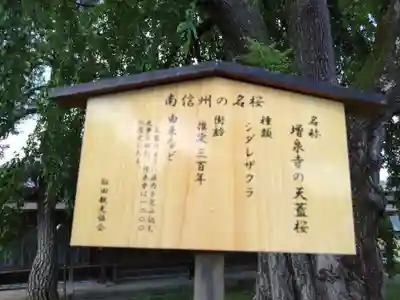 南信州の名桜
名称 増泉寺の天蓋桜
種類 シダレザクラ
樹齢 推定三百年
由来など
飯田観光協会